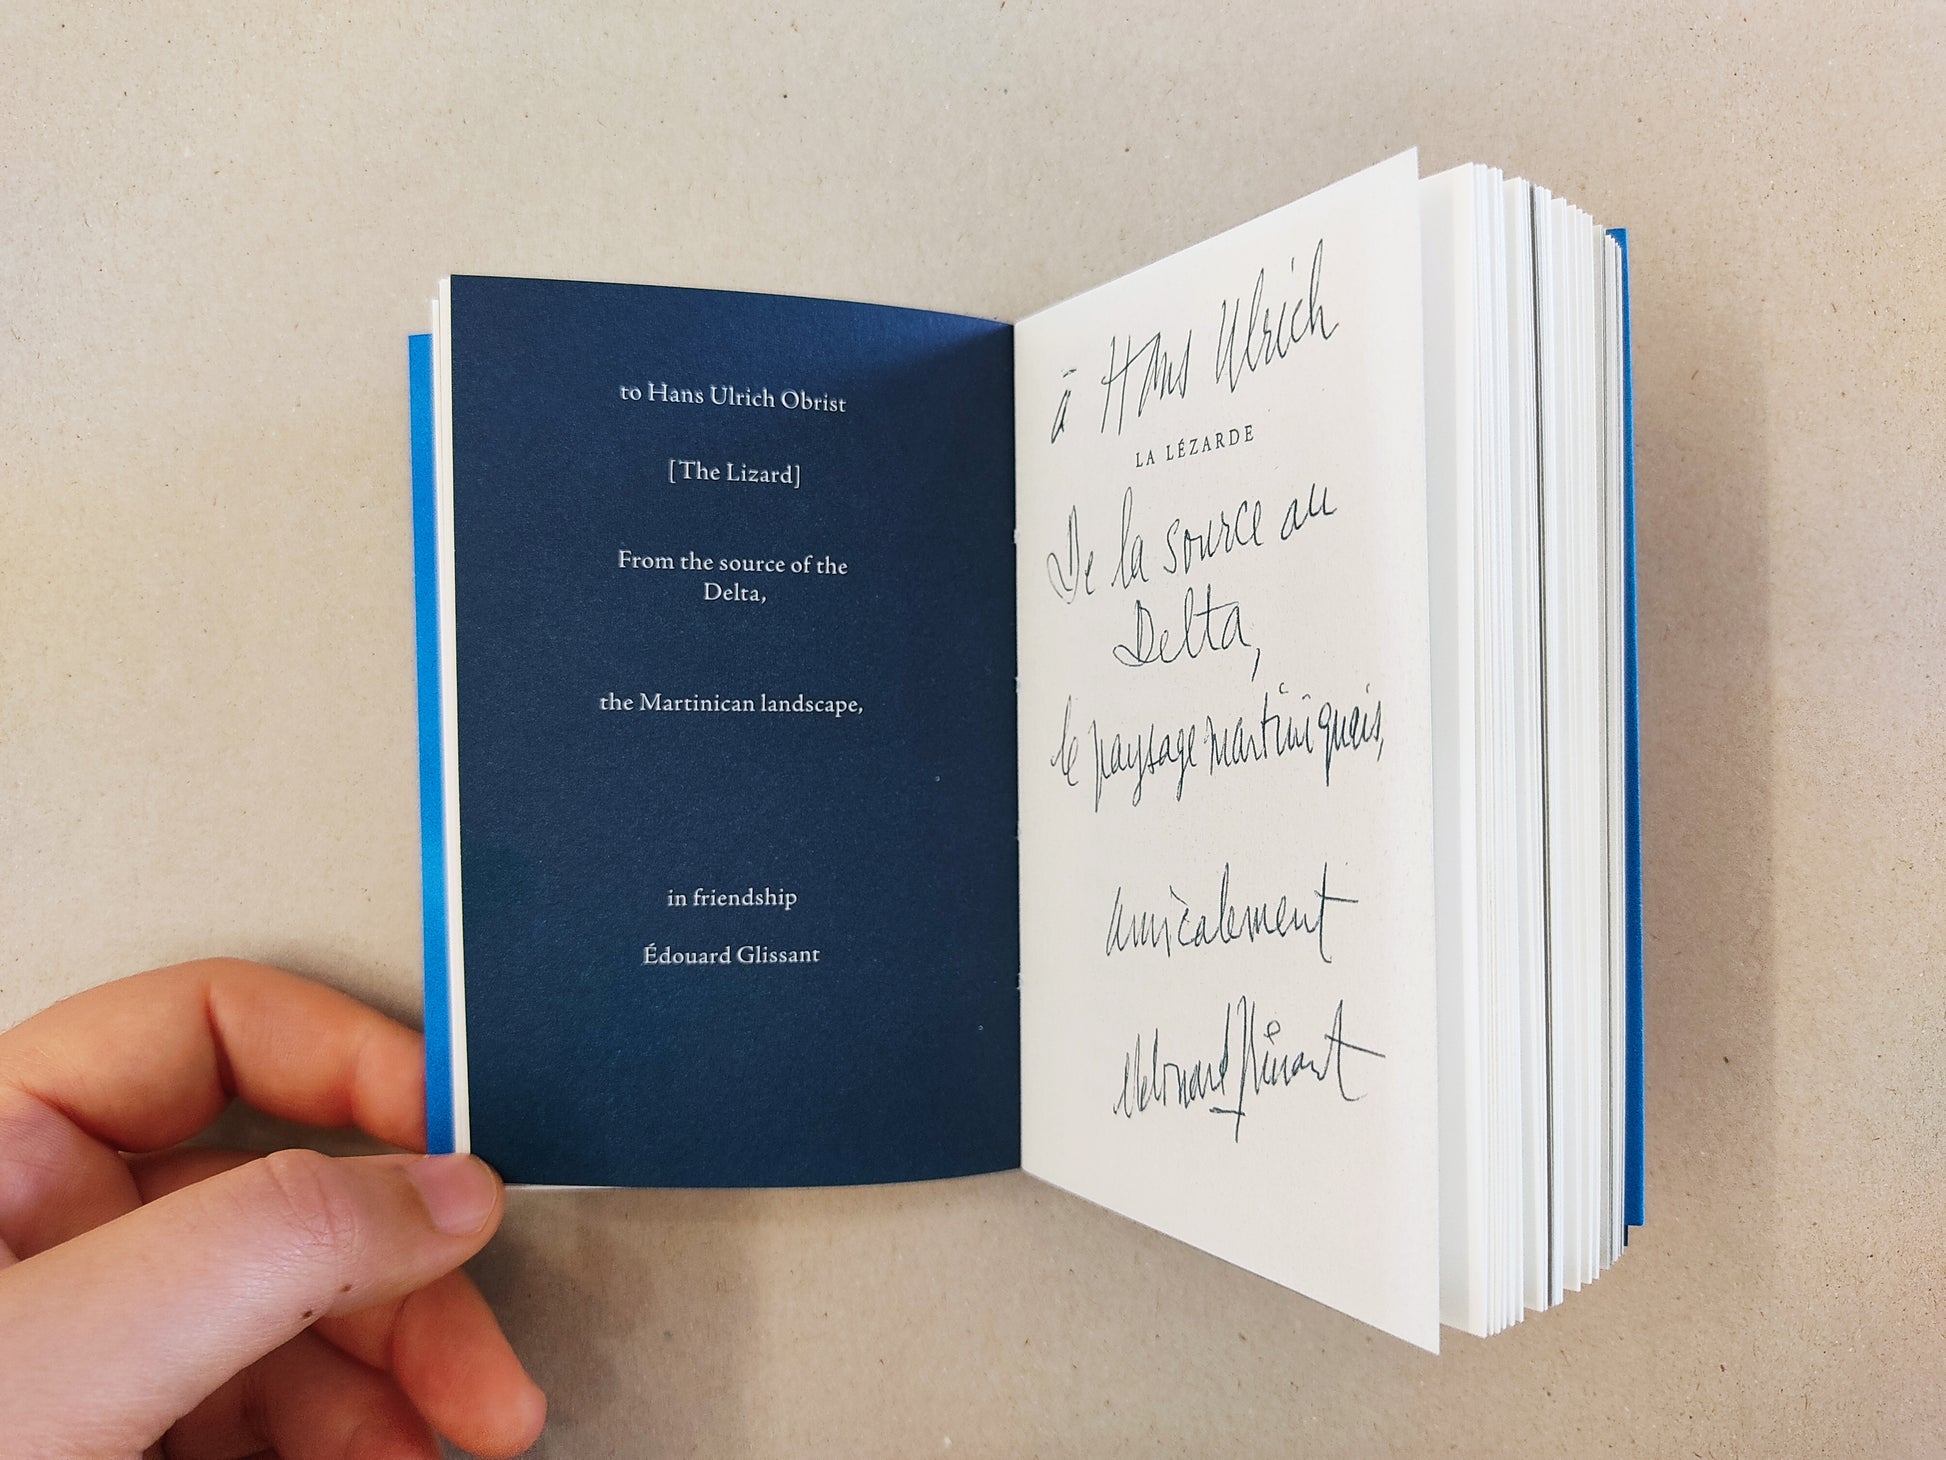 to Hans Ulrich Obrist
[The Lizard]
From the source of the
Delta,
the Martinican landscape,
in friendship
Édouard Glissant
à Hans Ulrich
LA LÉZARDE
De la source au
Delta,
le paysage martiniquais,
amicalement
Edouard Glissant